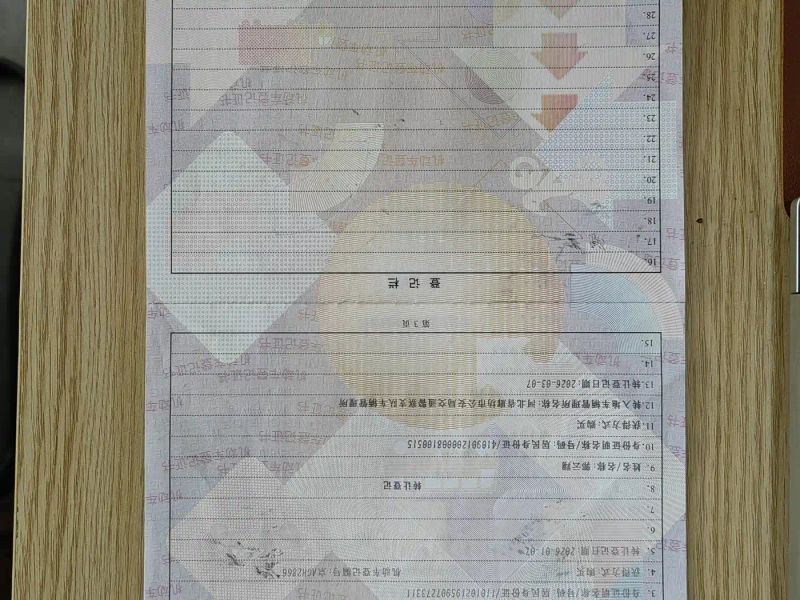 3. 身份证明名称/号码: 居民身份证/
4. 获得方式: 购买 机动车登记编号: 京AGH2866
5. 转让登记日期: 2026-01-07
6.
7.
8. 转让登记
9. 姓名/名称: 郭云翔
10. 身份证明名称/号码: 居民身份证/410301200008100515
11. 获得方式: 购买
12. 转入地车辆管理所名称: 河北省廊坊市公安局交通警察支队车辆管理所
13. 转让登记日期: 2026-03-07
14.
15.
第 3 页
登 记 栏
16.
17.
18.
19.
20.
21.
22.
23.
24.
25.
26.
27.
28.